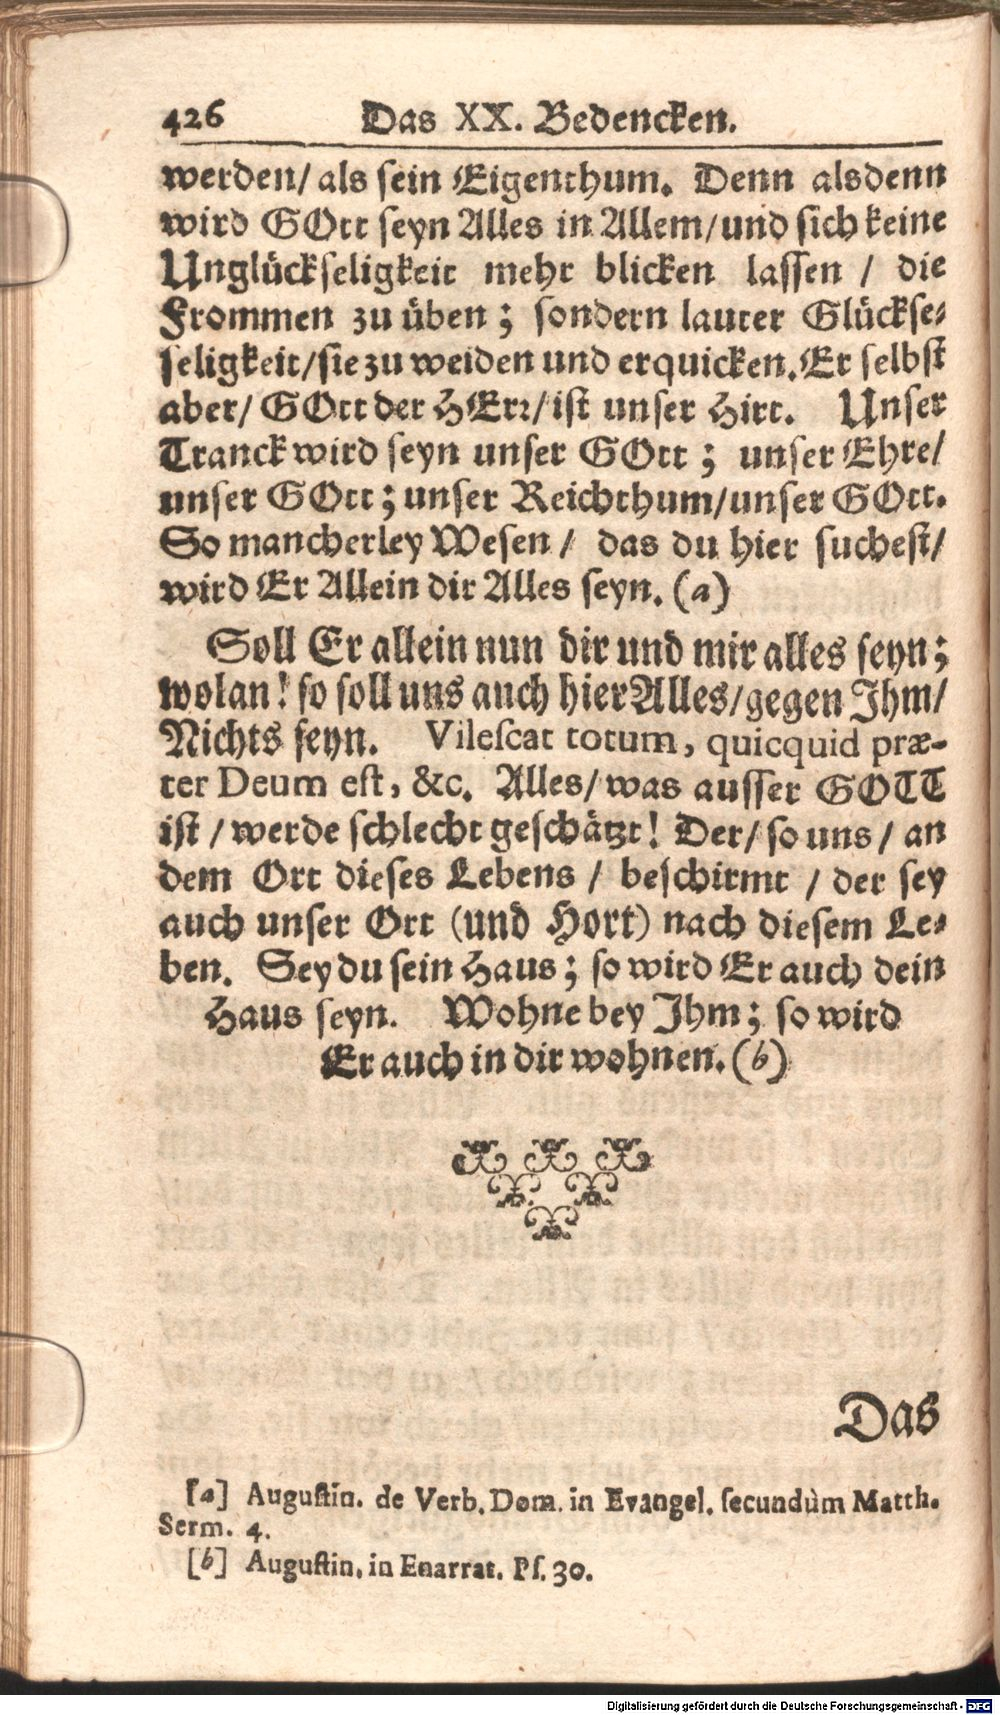 426 Das XX. Bedencken.
werden/ als sein Eigenthum. Denn alsdenn
wird GOtt seyn Alles in Allem/ und sich keine
Unglückseligkeit mehr blicken lassen / die
Frommen zu üben; sondern lauter Glückse-
seligkeit/ sie zu weiden und erquicken. Er selbst
aber/ GOtt der HErr/ ist unser Hirt. Unser
Tranck wird seyn unser GOtt; unser Ehre/
unser GOtt; unser Reichthum/ unser GOtt.
So mancherley Wesen / das du hier suchest/
wird Er Allein dir Alles seyn. (a)
Soll Er allein nun dir und mir alles seyn;
wolan! so soll uns auch hier Alles/ gegen Ihm/
Nichts seyn. Vilescat totum, quicquid præ-
ter Deum est, &c. Alles/ was ausser GOTT
ist / werde schlecht geschätzt! Der/ so uns / an
dem Ort dieses Lebens / beschirmt / der sey
auch unser Ort (und Hort) nach diesem Le-
ben. Sey du sein Haus; so wird Er auch dein
Haus seyn. Wohne bey Ihm; so wird
Er auch in dir wohnen. (b)
Das
[a] Augustin. de Verb. Dom. in Evangel. secundùm Matth.
Serm. 4.
[b] Augustin. in Enarrat. Ps. 30.
Digitalisierung gefördert durch die Deutsche Forschungsgemeinschaft - DFG